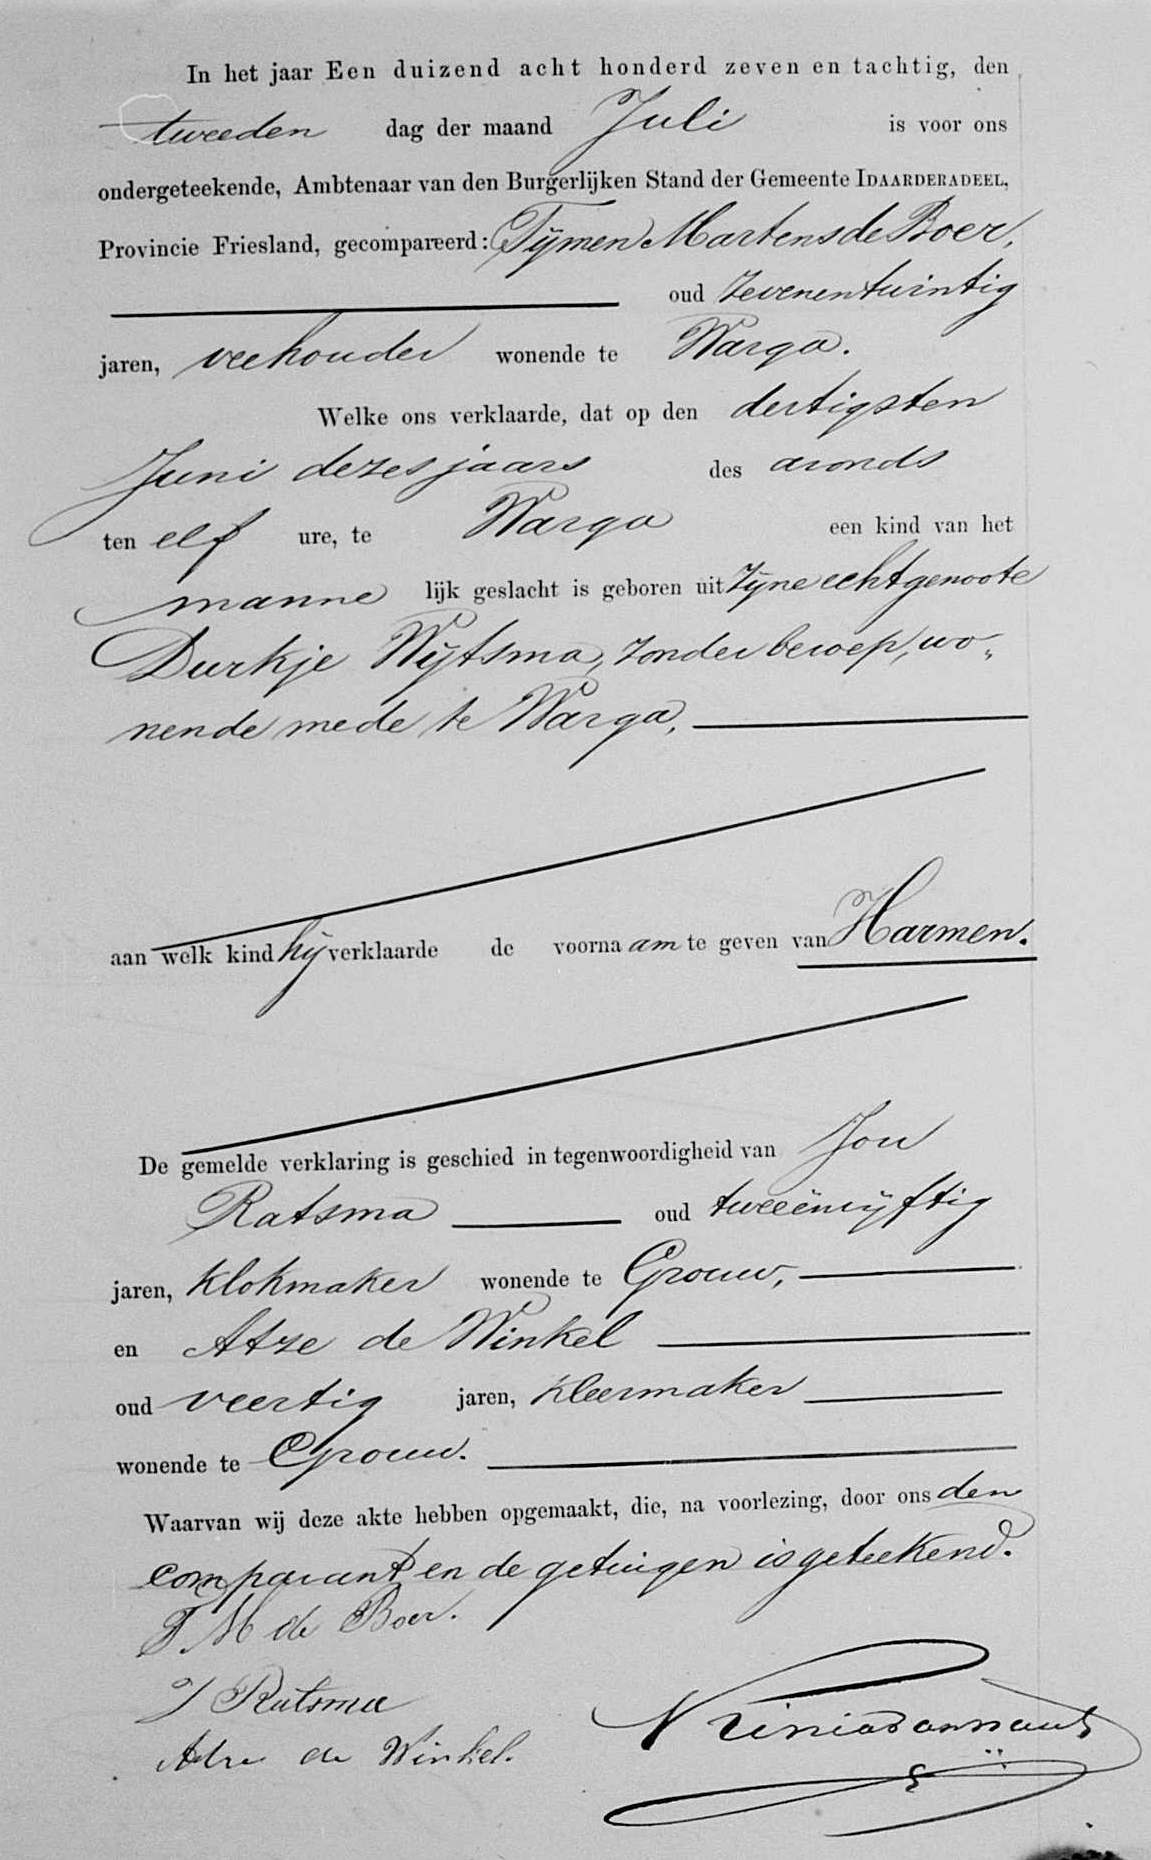 In het jaar Een duizend acht honderd zeven en tachtig, den
tweeden dag der maand Juli is voor ons
ondergeteekende, Ambtenaar van den Burgerlijken Stand der Gemeente IDAARDERADEEL,
Provincie Friesland, gecompareerd: Tijmen Martens de Boer,
oud zevenentwintig
jaren, veehouder wonende te Warga.
Welke ons verklaarde, dat op den dertigsten
Juni dezes jaars des avonds
ten elf ure, te Warga een kind van het
manne lijk geslacht is geboren uit zijne echtgenoote
Durkje Wijtsma, zonder beroep, wo„
nende mede te Warga,
aan welk kind hij verklaarde de voorna am te geven van Harmen.
De gemelde verklaring is geschied in tegenwoordigheid van Jou
Ratsma oud tweeënvijftig
jaren, klokmaker wonende te Grouw,
en Atze de Winkel
oud veertig jaren, kleermaker
wonende te Grouw.
Waarvan wij deze akte hebben opgemaakt, die, na voorlezing, door ons den
comparant en de getuigen is geteekend.
T M de Boer.
J Ratsma
de Winkel.